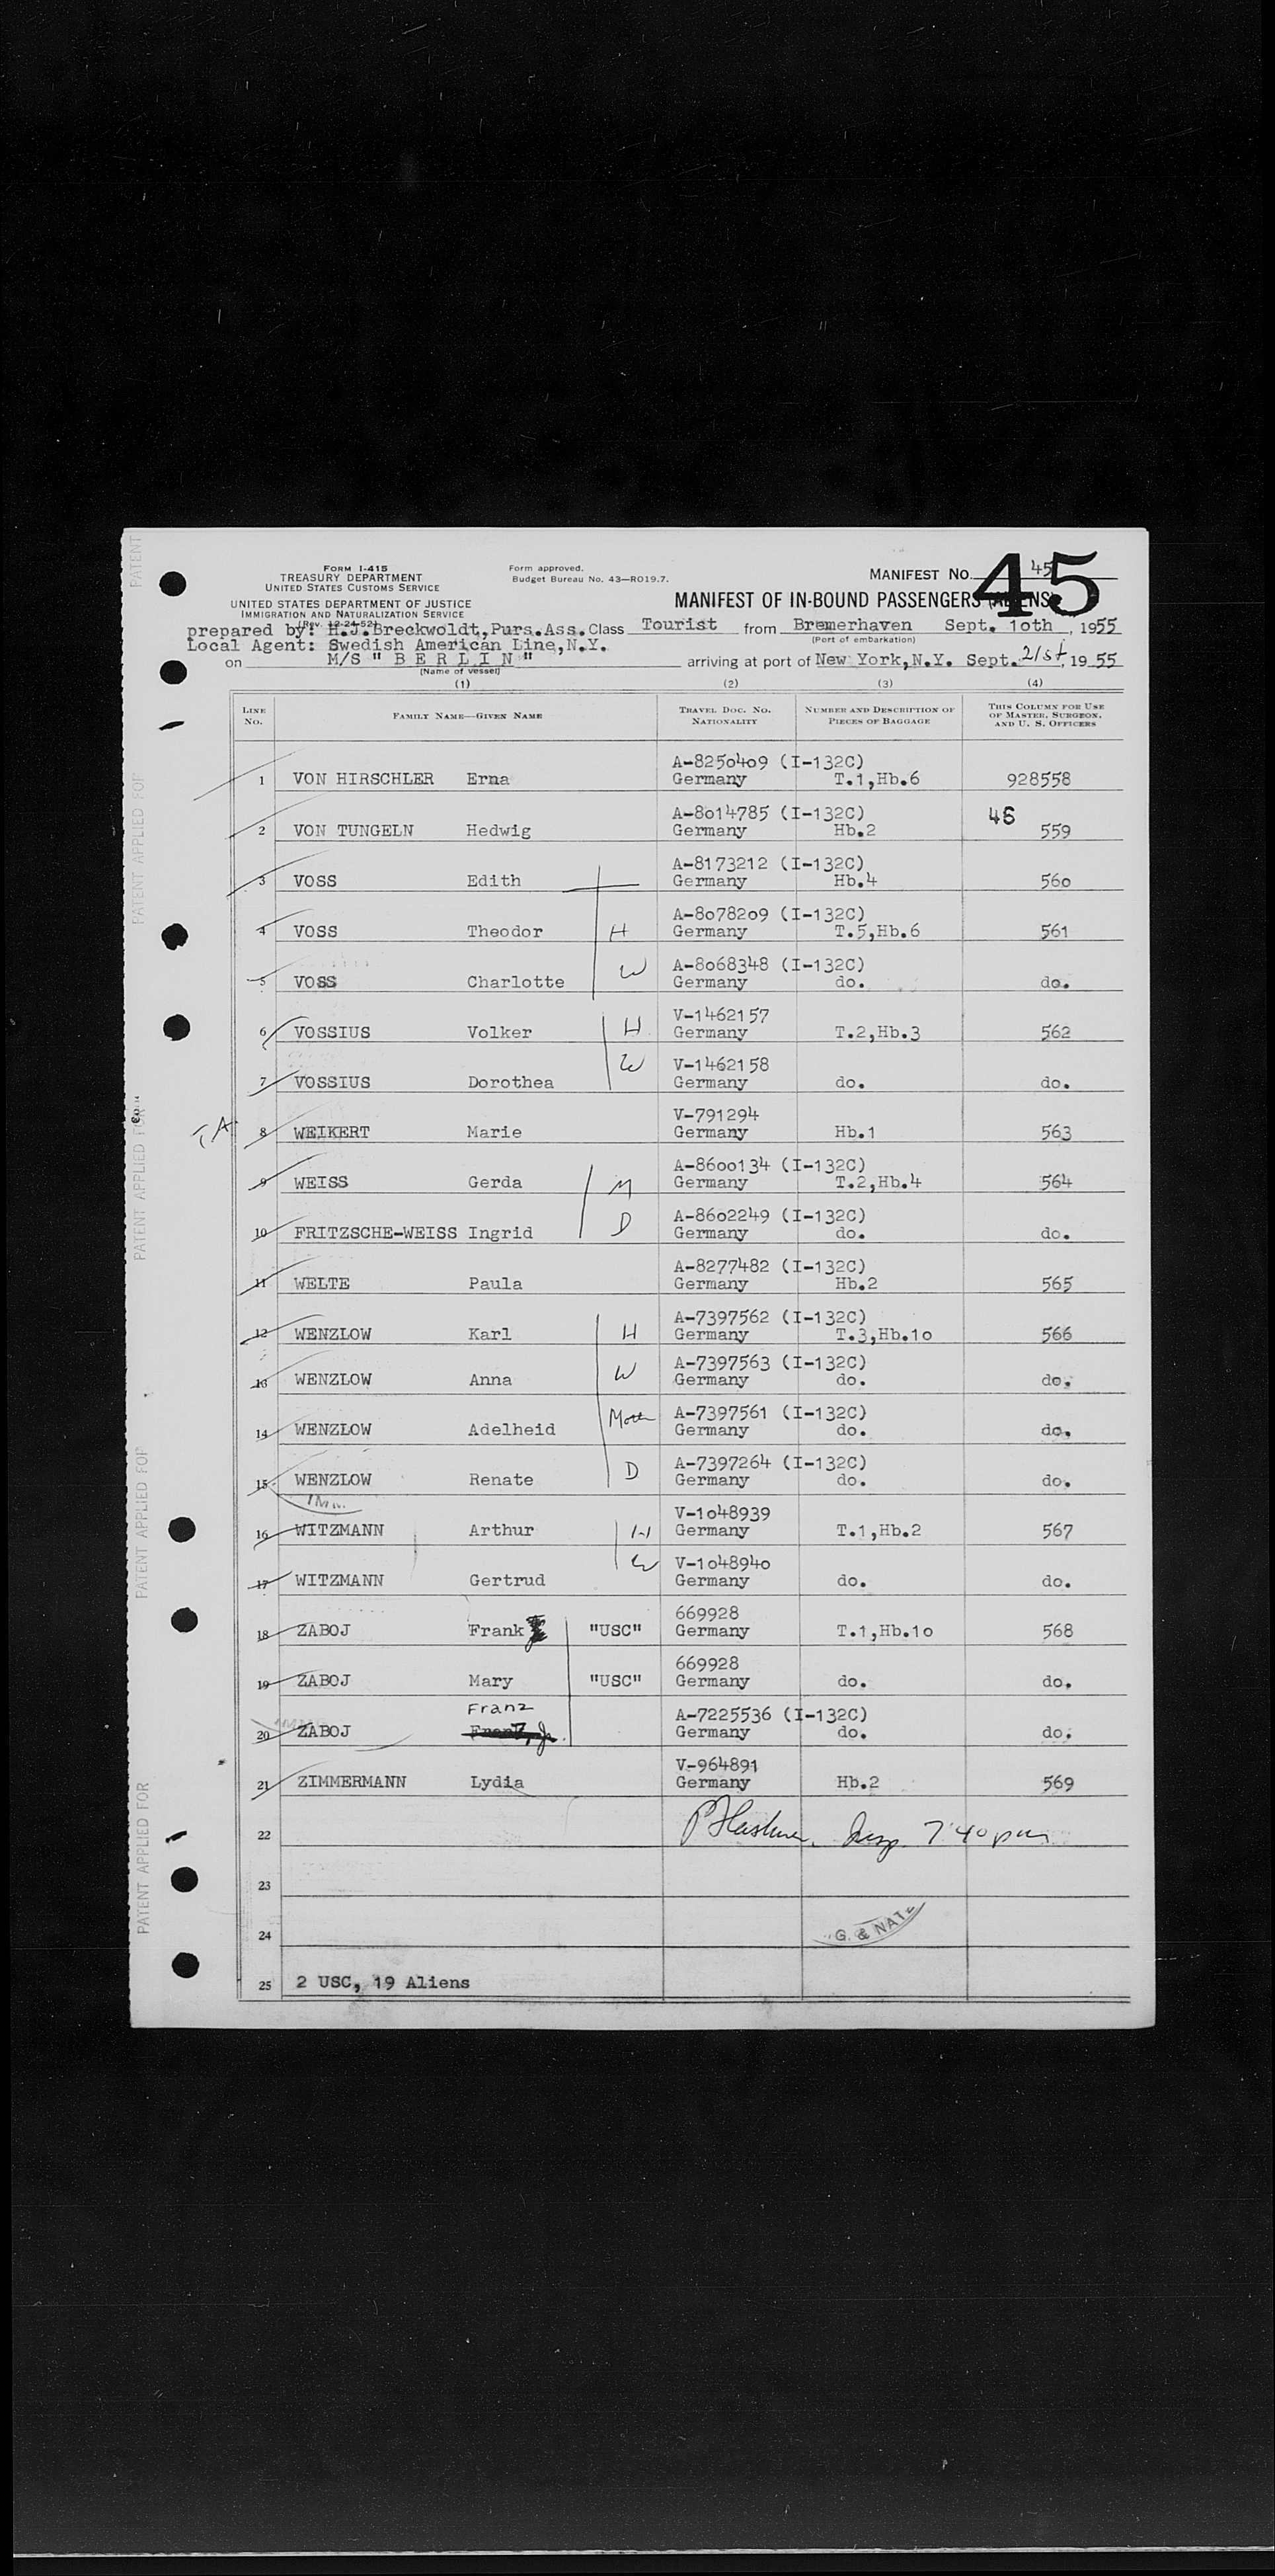 FORM I-415
TREASURY DEPARTMENT
UNITED STATES CUSTOMS SERVICE
UNITED STATES DEPARTMENT OF JUSTICE
IMMIGRATION AND NATURALIZATION SERVICE
(Rev. 12-24-52)
Form approved.
Budget Bureau No. 43—RO19.7.
MANIFEST NO. 45
45
MANIFEST OF IN-BOUND PASSENGERS (ALIENS)
prepared by: H.J.Breckwoldt,Purs.Ass. Class Tourist from Bremerhaven Sept. 10th, 1955
(Port of embarkation)
Local Agent: Swedish American Line,N.Y.
on M/S " B E R L I N " arriving at port of New York,N.Y. Sept. 21st, 1955
(Name of vessel)
(1) (2) (3) (4)
LINE NO. FAMILY NAME—GIVEN NAME TRAVEL DOC. NO. NATIONALITY NUMBER AND DESCRIPTION OF PIECES OF BAGGAGE THIS COLUMN FOR USE OF MASTER, SURGEON, AND U. S. OFFICERS
A-8250409 (I-132C)
1 VON HIRSCHLER Erna Germany T.1,Hb.6 928558
A-8014785 (I-132C) 46
2 VON TUNGELN Hedwig Germany Hb.2 559
A-8173212 (I-132C)
3 VOSS Edith Germany Hb.4 560
A-8078209 (I-132C)
4 VOSS Theodor H Germany T.5,Hb.6 561
A-8068348 (I-132C)
5 VOSS Charlotte W Germany do. do.
V-1462157
6 VOSSIUS Volker H Germany T.2,Hb.3 562
V-1462158
7 VOSSIUS Dorothea W Germany do. do.
V-791294
8 WEIKERT Marie Germany Hb.1 563
A-8600134 (I-132C)
9 WEISS Gerda M Germany T.2,Hb.4 564
A-8602249 (I-132C)
10 FRITZSCHE-WEISS Ingrid D Germany do. do.
A-8277482 (I-132C)
11 WELTE Paula Germany Hb.2 565
A-7397562 (I-132C)
12 WENZLOW Karl H Germany T.3,Hb.10 566
A-7397563 (I-132C)
13 WENZLOW Anna W Germany do. do.
A-7397561 (I-132C)
14 WENZLOW Adelheid Moth Germany do. do.
A-7397264 (I-132C)
15 WENZLOW Renate D Germany do. do.
IMM.
V-1048939
16 WITZMANN Arthur H Germany T.1,Hb.2 567
V-1048940
17 WITZMANN Gertrud W Germany do. do.
669928
18 ZABOJ Frank "USC" Germany T.1,Hb.10 568
669928
19 ZABOJ Mary "USC" Germany do. do.
Franz A-7225536 (I-132C)
20 ZABOJ Germany do. do.
V-964891
21 ZIMMERMANN Lydia Germany Hb.2 569
22 Insp. 7 40 pm
23
24 G. & NATZ
25 2 USC, 19 Aliens
PATENT
PATENT APPLIED FOR
PATENT APPLIED FOR
PATENT APPLIED FOR
PATENT APPLIED FOR